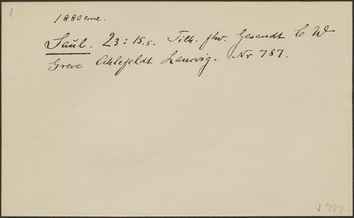 1880erne.
Saül. 23 : 15,5. Tilh. fhv. Gesandt C W
Greve Ahlefeldt Laurvig. Nr 757.